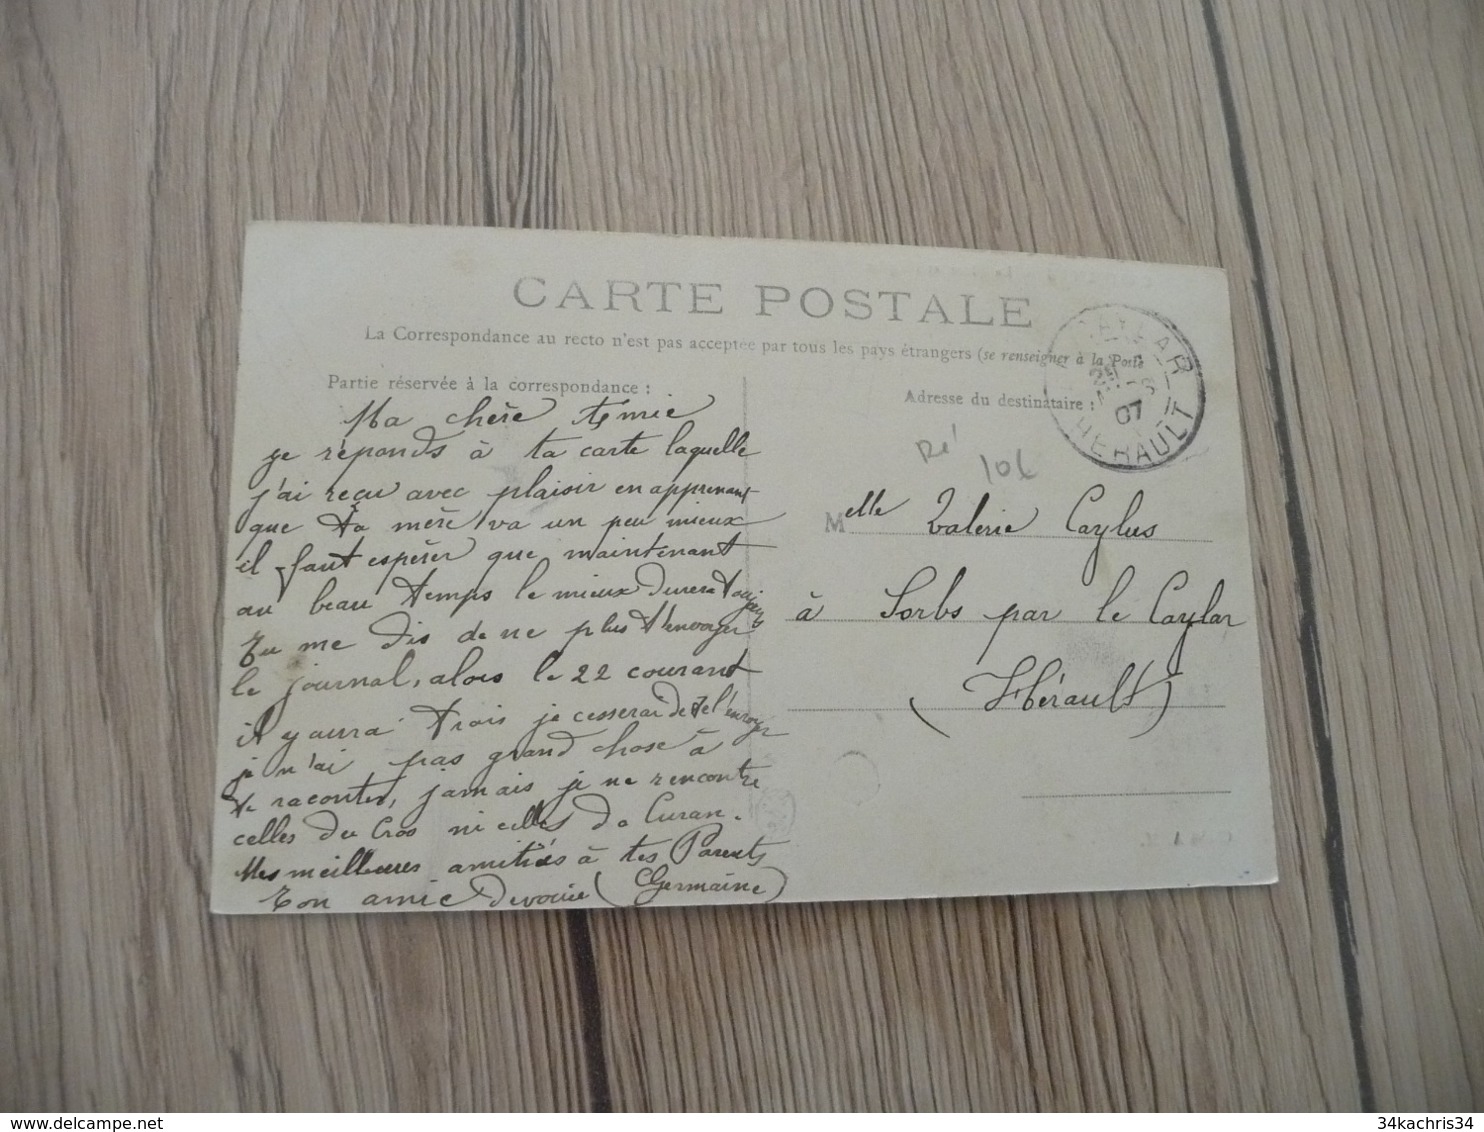 CARTE POSTALE
La Correspondance au recto n'est pas acceptée par tous les pays étrangers (se renseigner à la Poste
Partie réservée à la correspondance :
Ma chère
je réponds à ta carte laquelle
j'ai reçu avec plaisir en apprenant
que ta mère va un peu mieux
il faut espérer que maintenant
au beau temps le mieux durera toujours
Tu me dis de ne plus t'envoyer
le journal, alors le 22 courant
il y aura trois je cesserai de te l'envoyer
je n'ai pas grand chose à
te raconter, jamais je ne rencontre
celles du Cros ni celles de Curan.
Mes meilleures amitiés à tes Parents
Ton amie Devouée (Germaine)
Adresse du destinataire :
CAYLAR
07
HERAULT
Ré
10€
Melle Valerie Caylus
à Sorbs par le Caylar
(Hérault)
delcampe.net
34kachris34